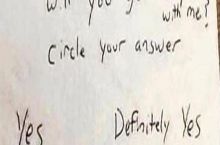 you
with me?
Circle your answer
Yes Definitely Yes